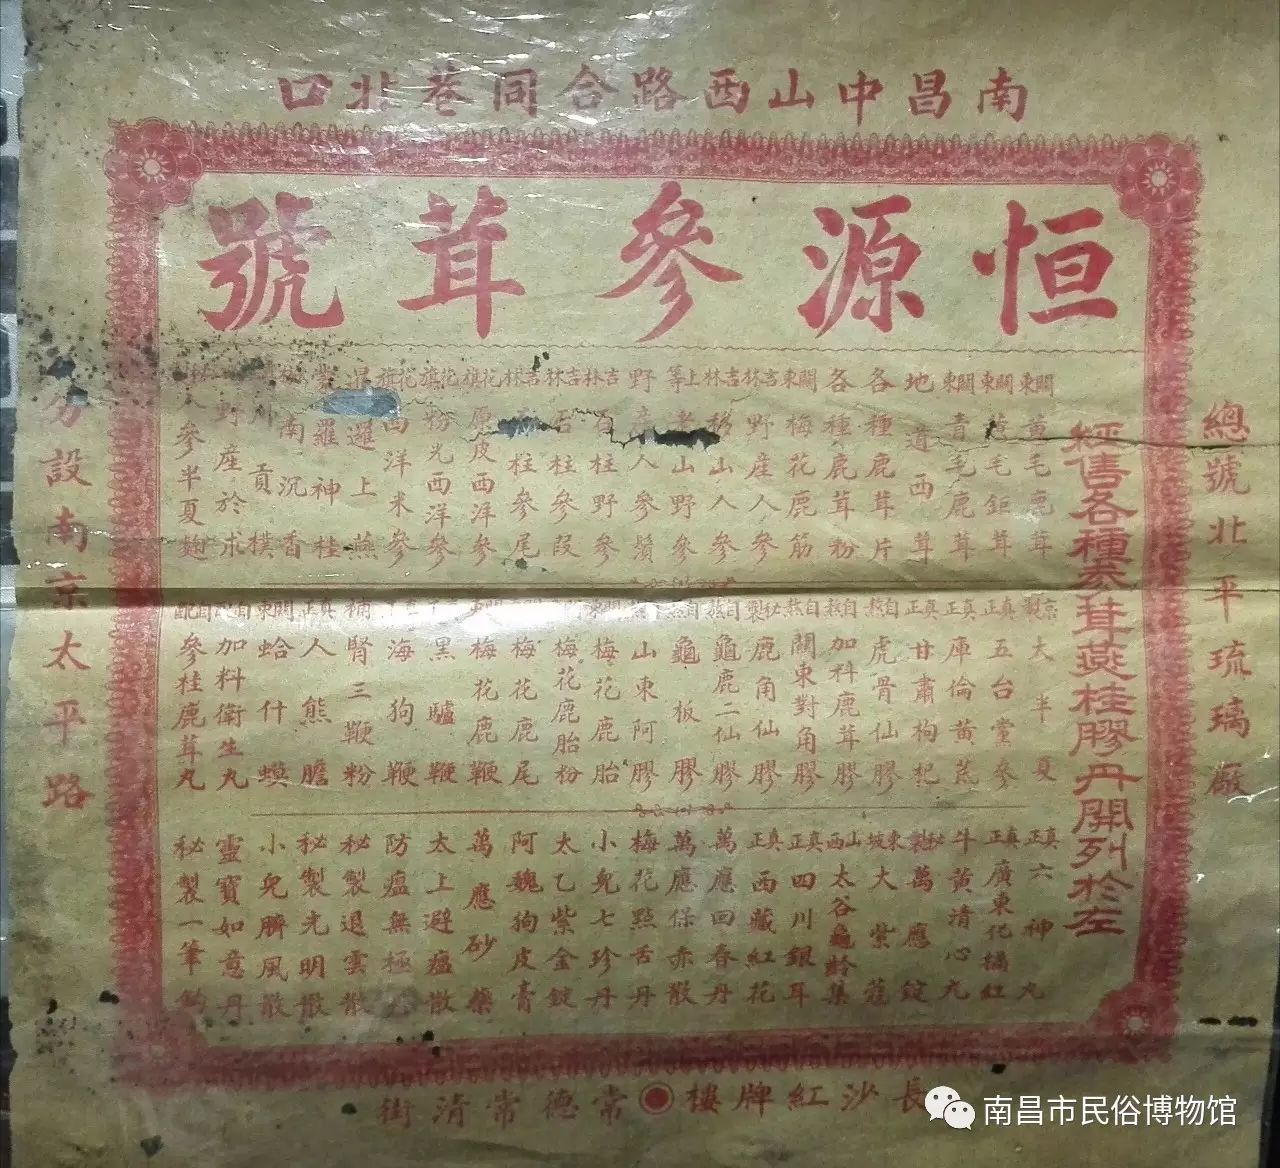 南昌中山西路合同巷北口
恒源參茸號
總號北平琉璃廠
經售各種參茸燕桂膠丹開列於左
關東黃毛鹿茸
關東 毛鉅茸
關東青毛鹿茸
地道西茸
各種鹿茸片
各種鹿茸粉
關東梅花鹿筋
吉林野產人參
吉林移山人參
上等老山野參
野產人參鬚
吉林百柱野參
吉林石柱參段
吉林石柱參尾
花旗原皮西洋參
花旗粉光西洋參
花旗西洋米參
暹邏上燕
羅神桂
南沉香
川貢樸
野產於朮
人參半夏麯
京製大半夏
真正五台黨參
真正庫倫黃蓍
真正甘肅枸杞
自熬虎骨仙膠
自熬加料鹿茸膠
自熬關東對角膠
秘製鹿角仙膠
自熬龜鹿二仙膠
自熬龜板膠
山東阿膠
關東梅花鹿胎
梅花鹿胎粉
梅花鹿尾
關東梅花鹿鞭
黑驢鞭
海狗鞭
補腎三鞭粉
真正人熊膽
關東蛤什蟆
加料衛生丸
自配參桂鹿茸丸
真正六神丸
真正廣東化橘紅
牛黃清心丸
秘製萬應錠
東坡大紫蔻
山西太谷龜齡集
真正四川銀耳
真正西藏紅花
萬應回春丹
萬應保赤散
梅花點舌丹
小兒七珍丹
太乙紫金錠
阿魏狗皮膏
萬應砂藥
太上避瘟散
防瘟無極丸
秘製退雲散
秘製光明散
小兒臍風散
靈寶如意丹
秘製一筆鈎
分設南京太平路
長沙紅牌樓 常德常清街
南昌市民俗博物馆